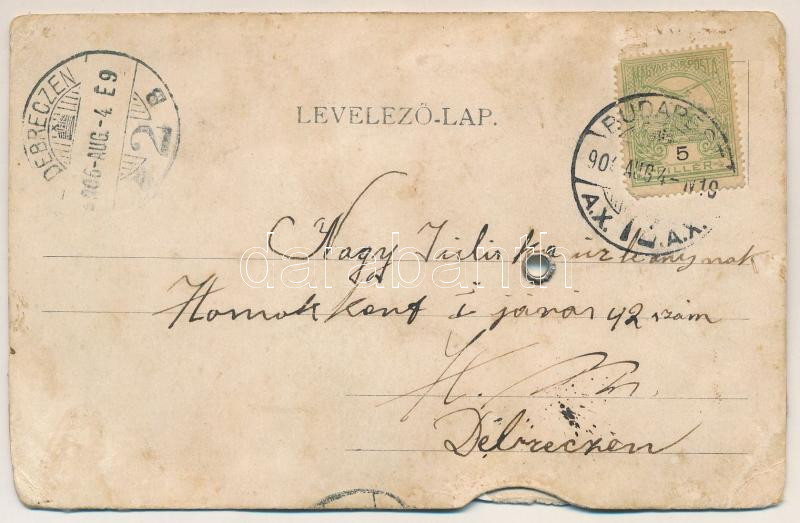 DEBRECZEN
906-AUG.-4 É9
2B
LEVELEZŐ-LAP.
MAGYAR KIR. POSTA
5
FILLER
BUDAPEST
AUG 4
A.X. A.X.
darabanth
Nagy Juliska úrleánynak
Homokkert I járás 42 szám
Debreczen